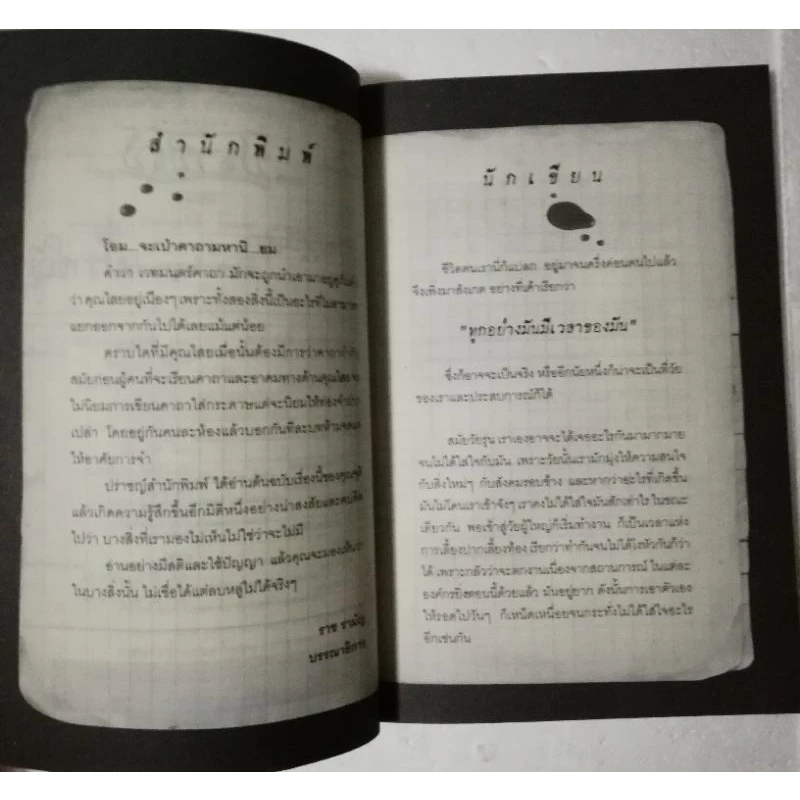 สำนักพิมพ์
โอม...จะเป่าคาถามหานิ...ยม
คำว่า เวทมนตร์คาถา มักจะถูกนำเอามาอยู่คู่กับคำ
ว่า คุณไสยอยู่เนืองๆ เพราะทั้งสองสิ่งนี้เป็นอะไรที่ไม่สามารถ
แยกออกจากกันไปได้เลยแม้แต่น้อย
ตราบใดที่มีคุณไสยเมื่อนั้นต้องมีการว่าคาถากำกับ
สมัยก่อนผู้คนที่จะเรียนคาถาและอาคมทางด้านคุณไสย จะ
ไม่นิยมการเขียนคาถาใส่กระดาษแต่จะนิยมให้ท่องจำปาก
เปล่า โดยอยู่กันคนละห้องแล้วบอกกันทีละบทห้ามจดแต่
ให้อาศัยการจำ
ปราชญ์สำนักพิมพ์ ได้อ่านต้นฉบับเรื่องนี้ของคุณ
แล้วเกิดความรู้สึกขึ้นอีกมิติหนึ่งอย่างน่าสงสัยและครุ่นคิด
ไปว่า บางสิ่งที่เรามองไม่เห็นไม่ใช่ว่าจะไม่มี
อ่านอย่างมีสติและใช้ปัญญา แล้วคุณจะมองเห็นว่า
ในบางสิ่งนั้น ไม่เชื่อได้แต่ลบหลู่ไม่ได้จริงๆ
ราช รามัญ
บรรณาธิการ
นักเขียน
ชีวิตคนเรานี่ก็แปลก อยู่มาจนครึ่งค่อนคนไปแล้ว
จึงเพิ่งมาสังเกต อย่างที่เค้าเรียกว่า
"ทุกอย่างมันมีเวลาของมัน"
ซึ่งก็อาจจะเป็นจริง หรืออีกนัยหนึ่งก็น่าจะเป็นที่วัย
ของเราและประสบการณ์ก็ได้
สมัยวัยรุ่น เราเองอาจจะได้เจออะไรกันมามากมาย
จนไม่ได้ใส่ใจกับมัน เพราะวัยนั้นเรามักมุ่งให้ความสนใจ
กับสิ่งใหม่ๆ กับสังคมรอบข้าง และหากว่าอะไรที่เกิดขึ้น
มันไม่โดนเราเข้าจังๆ เราคงไม่ได้ใส่ใจมันสักเท่าไร ในขณะ
เดียวกัน พอเข้าสู่วัยผู้ใหญ่ก็เริ่มทำงาน ก็เป็นเวลาแห่ง
การเลี้ยงปากเลี้ยงท้อง เรียกว่าทำกันจนไม่ได้โงหัวกันก็ว่า
ได้ เพราะกลัวว่าจะตกงานเนื่องจากสถานการณ์ ในแต่ละ
องค์กรยิ่งตอนนี้ด้วยแล้ว มันอยู่ยาก ดังนั้นการเอาตัวเอง
ให้รอดไปวันๆ ก็เหน็ดเหนื่อยจนกระทั่งไม่ได้ใส่ใจอะไร
อีกเช่นกัน